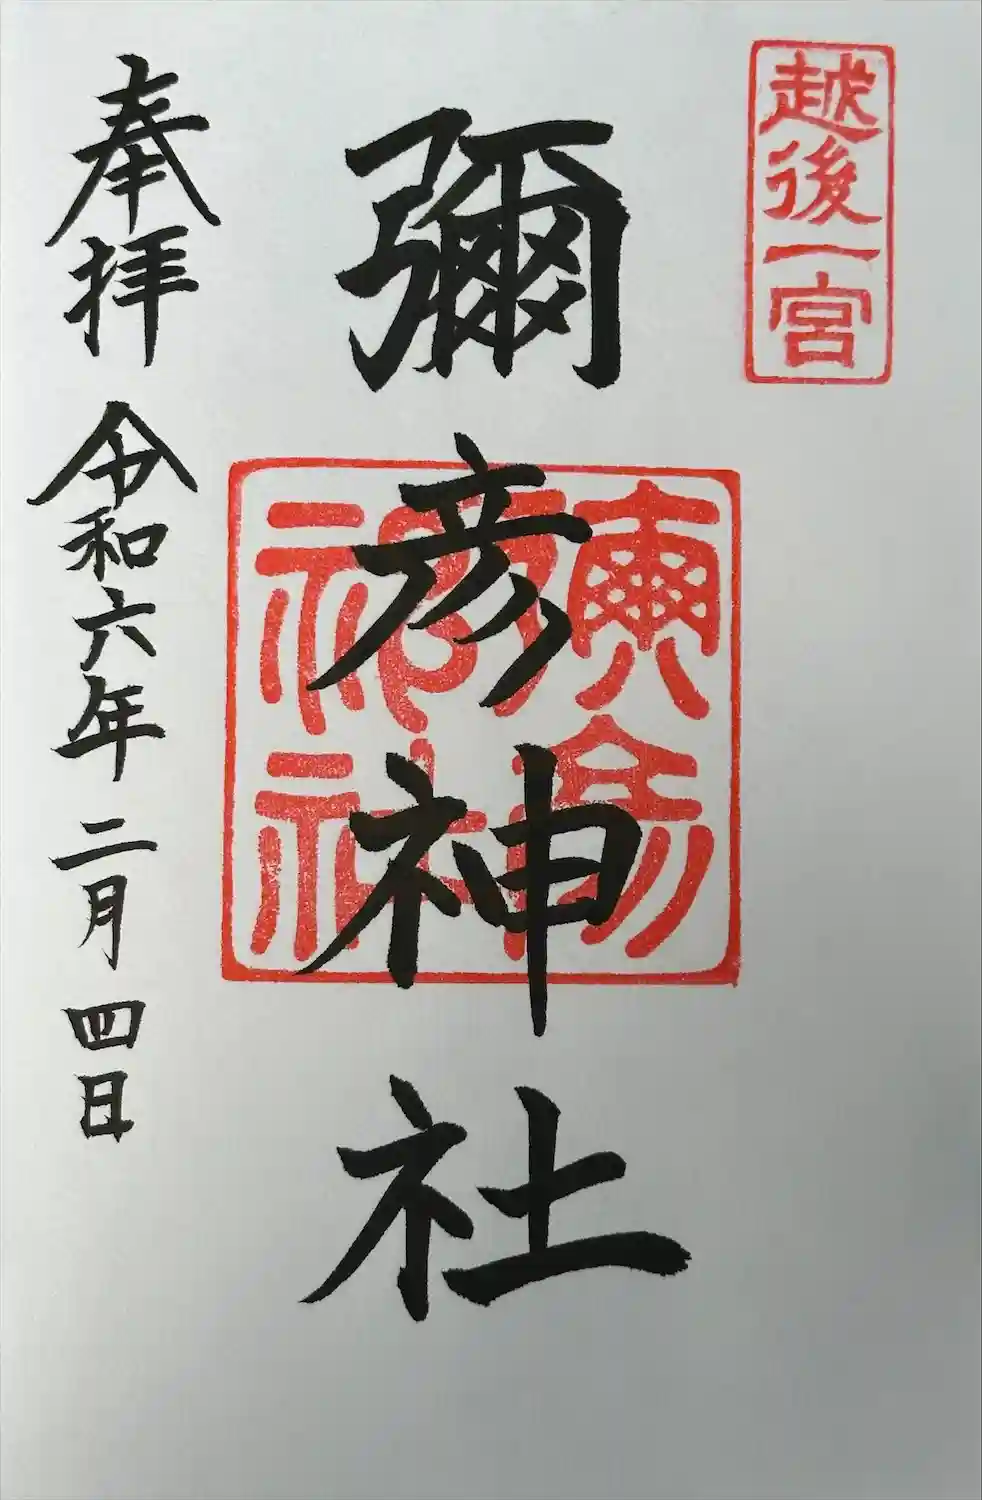 越後一宮
彌彦神社
奉拝 令和六年二月四日